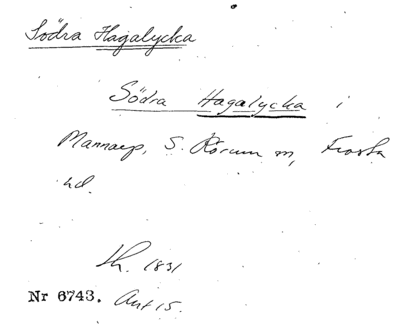 Södra Hagalycka
Södra Hagalycka i
Mannarp, S. Rörum sn, Frosta
hd.
Lh. 1831
Nr 6743. Akt 15.